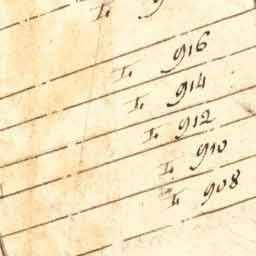 I. 916
I. 914
I. 912
I. 910
I. 908